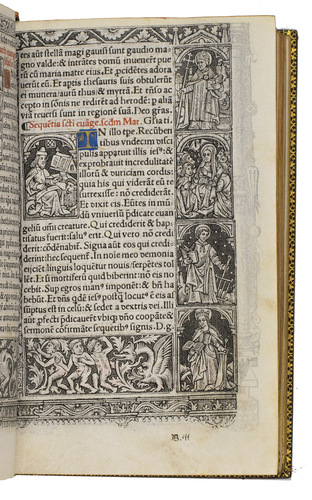 tes aūt stellā magi gauisi sunt gaudio ma
gno valde: & intrātes domū inuenerūt pue
rū cū maria matre eius. Et p̱cidētes adora
uerūt eū. Et aptis thesauris suis obtulerūt
ei munera / aurū thus / & myrrā. Et rñso ac
cepto in sōnis ne redirēt ad herodē: p aliā
viā reuersi sunt in regionē suā. Deo grās.
Sequētia scti euāge. scdm Mar. Gl'ati.
IN illo tpe. Recūbēti
bus vndecim disci
pulis apparuit illis ies': &
exprobrauit incredulitatē
illorū & duriciam cordis:
quia his qui viderāt eū re
surrexisse: nō crediderāt.
Et dixit eis. Eūtes in mū
dū vniuersū p̱dicate euan
geliū oīni creature. Qui crediderit & bap
tisatus fuerit: salu' erit. Qui vero nō credi
derit: cōdēnabit. Signa aūt eos qui credi
derint: hec sequent. In noīe meo demonia
eiiciēt. linguis loquētur nouis: serpētes tol
lēt. Et si mortiferū quid biberint: nō eis no
cebit. Sup egros man' imponēt: & bñ ha
bebūt. Et dñs qdē ies' postq̄ locut' ē eis as
suptus est in celū: & sedet a dextris dei. Illi
aūt p̱fecti p̱dicauerūt vbiq̄ dño coopāte &
sermonē cōfirmāte sequētib' signis. D. g.
B.iii